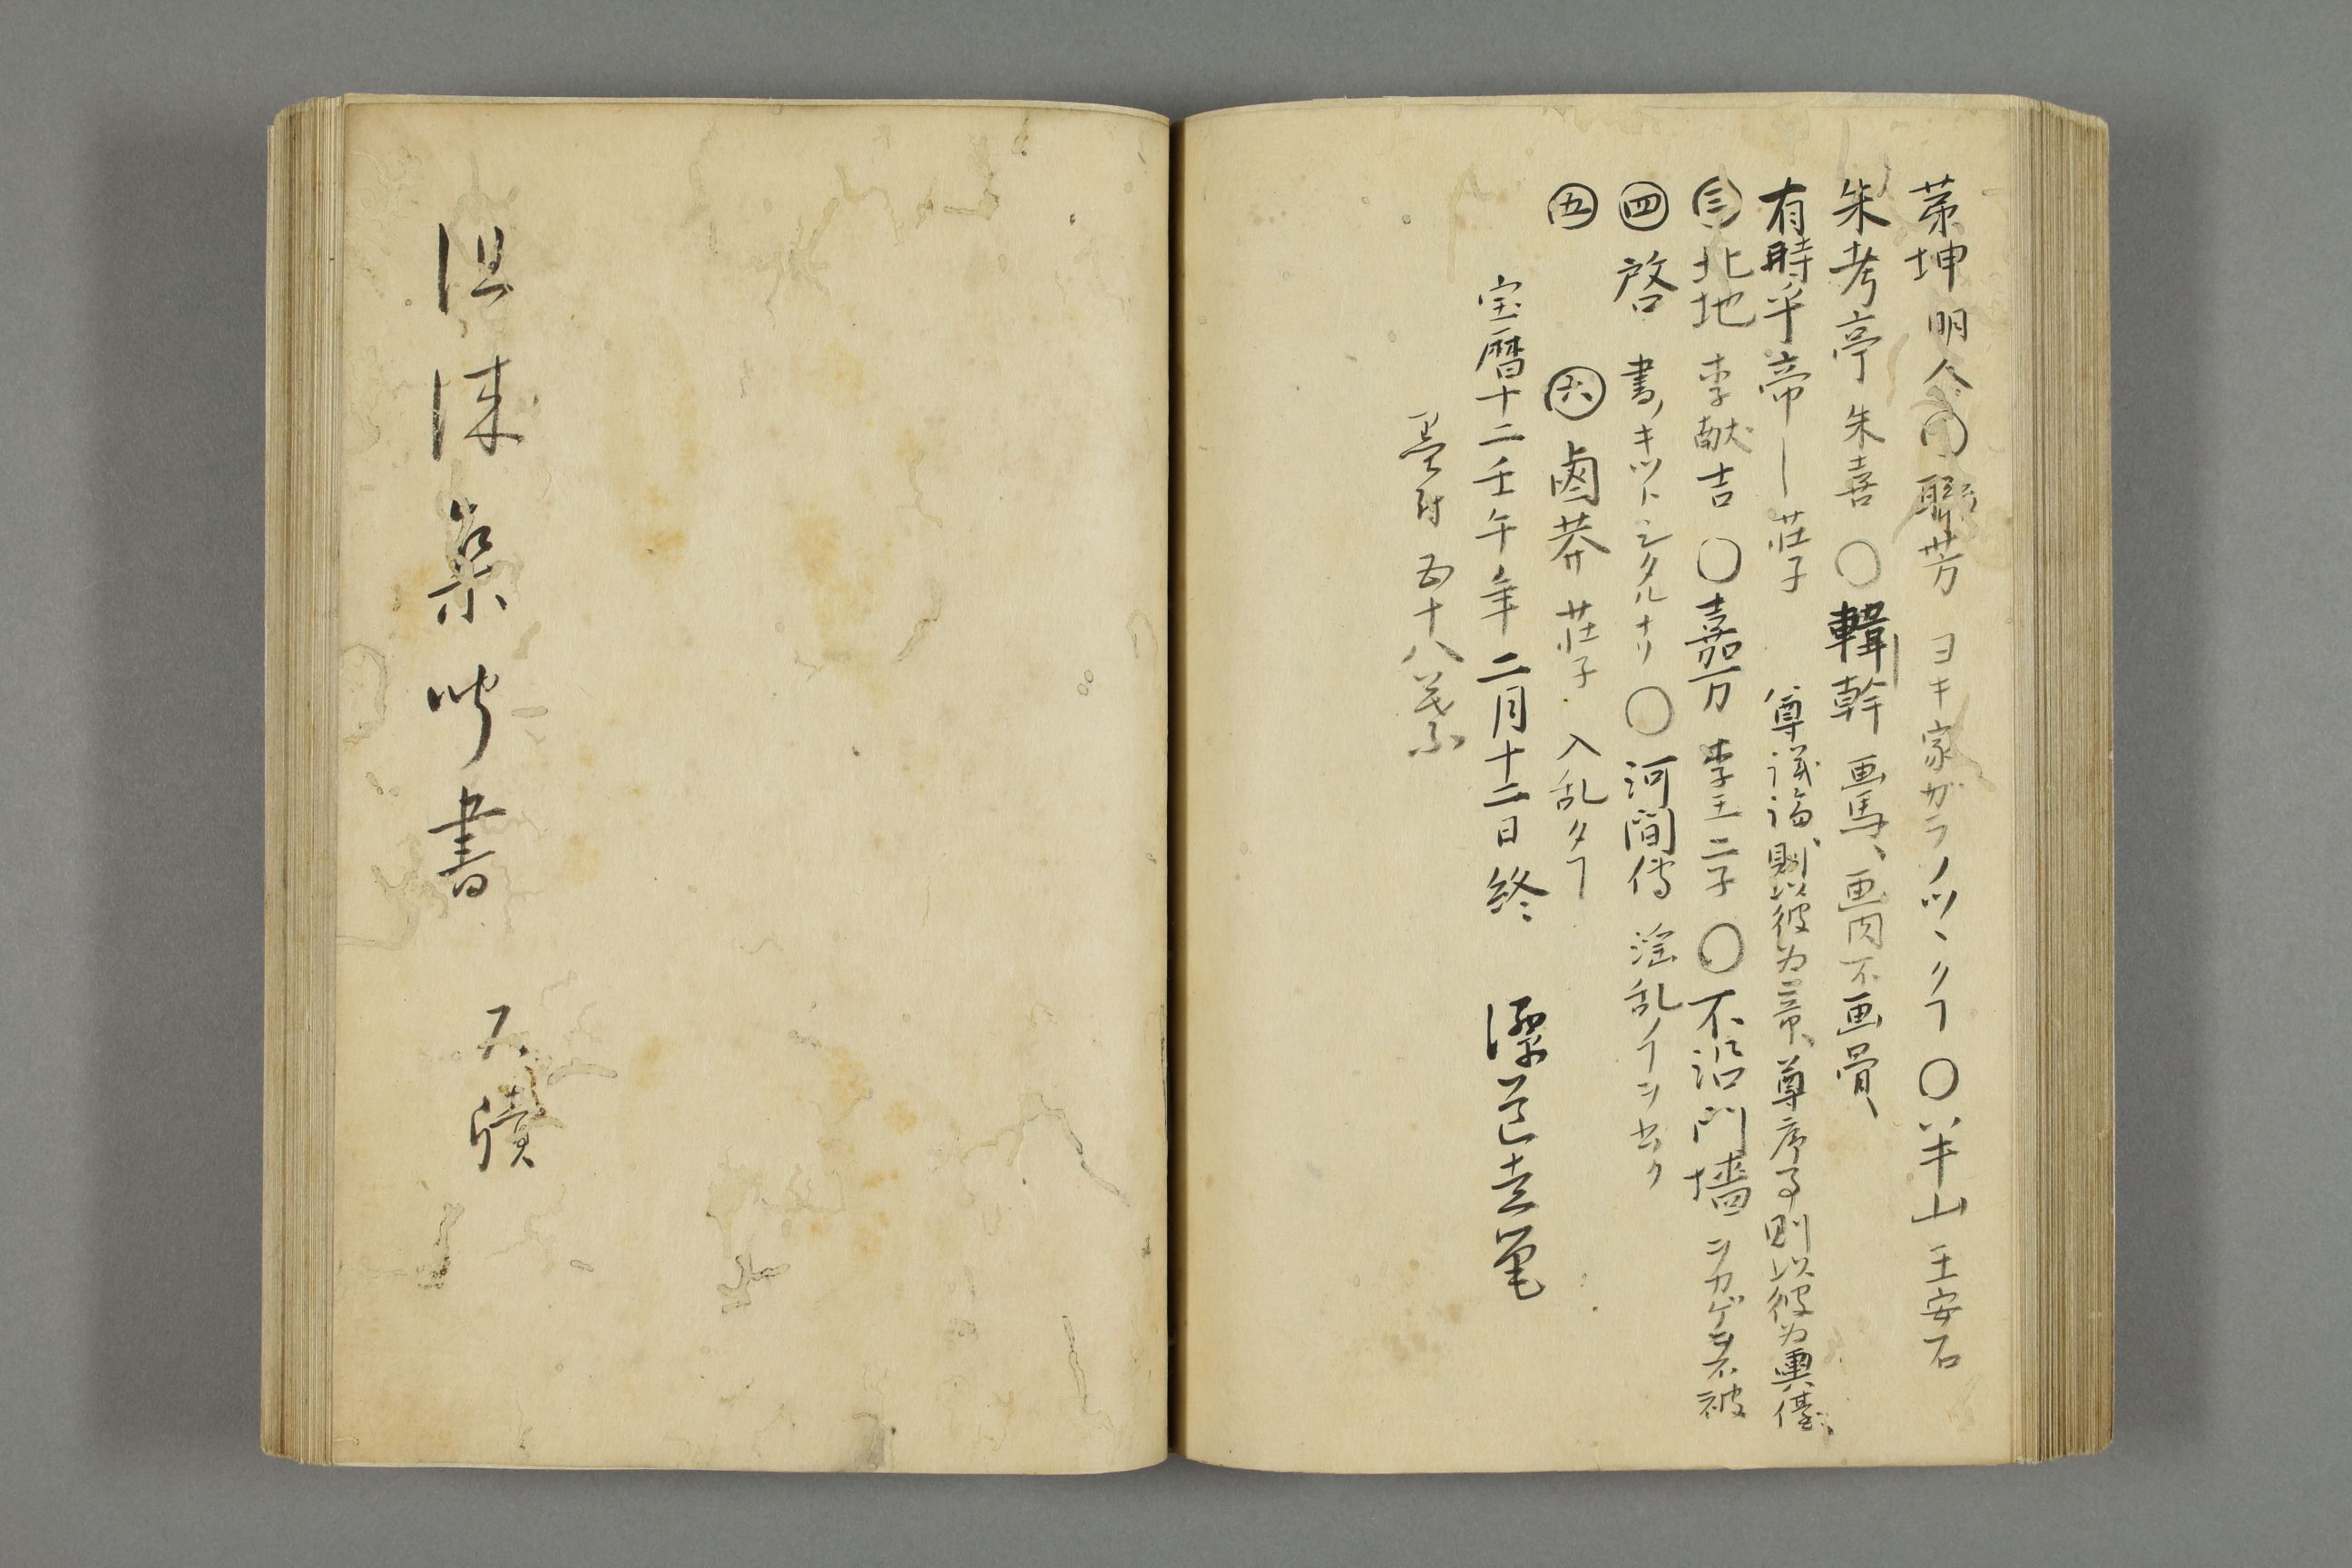 茅坤 明人 〇聯芳 ヨキ家ガラノツヽクヿ 〇半山 王安石
朱考亭 朱熹 〇韓幹 画馬、画肉不画骨、
有時乎帝― 荘子 尊議論、則以彼為帝、尊序事則以彼為輿儓、
㊂北地 李献吉 〇嘉万 李王二子 〇不沿門墻 シカゲヲ不被
㊃啓 書ノキツトシタルナリ 〇河間傳 淫乱ノヿヲカク
㊄ ㊅鹵莽 荘子 入乱タヿ
宝暦十二壬午年二月十二日終 源
墨付 五十八葉
徂徠集 書 尺牘